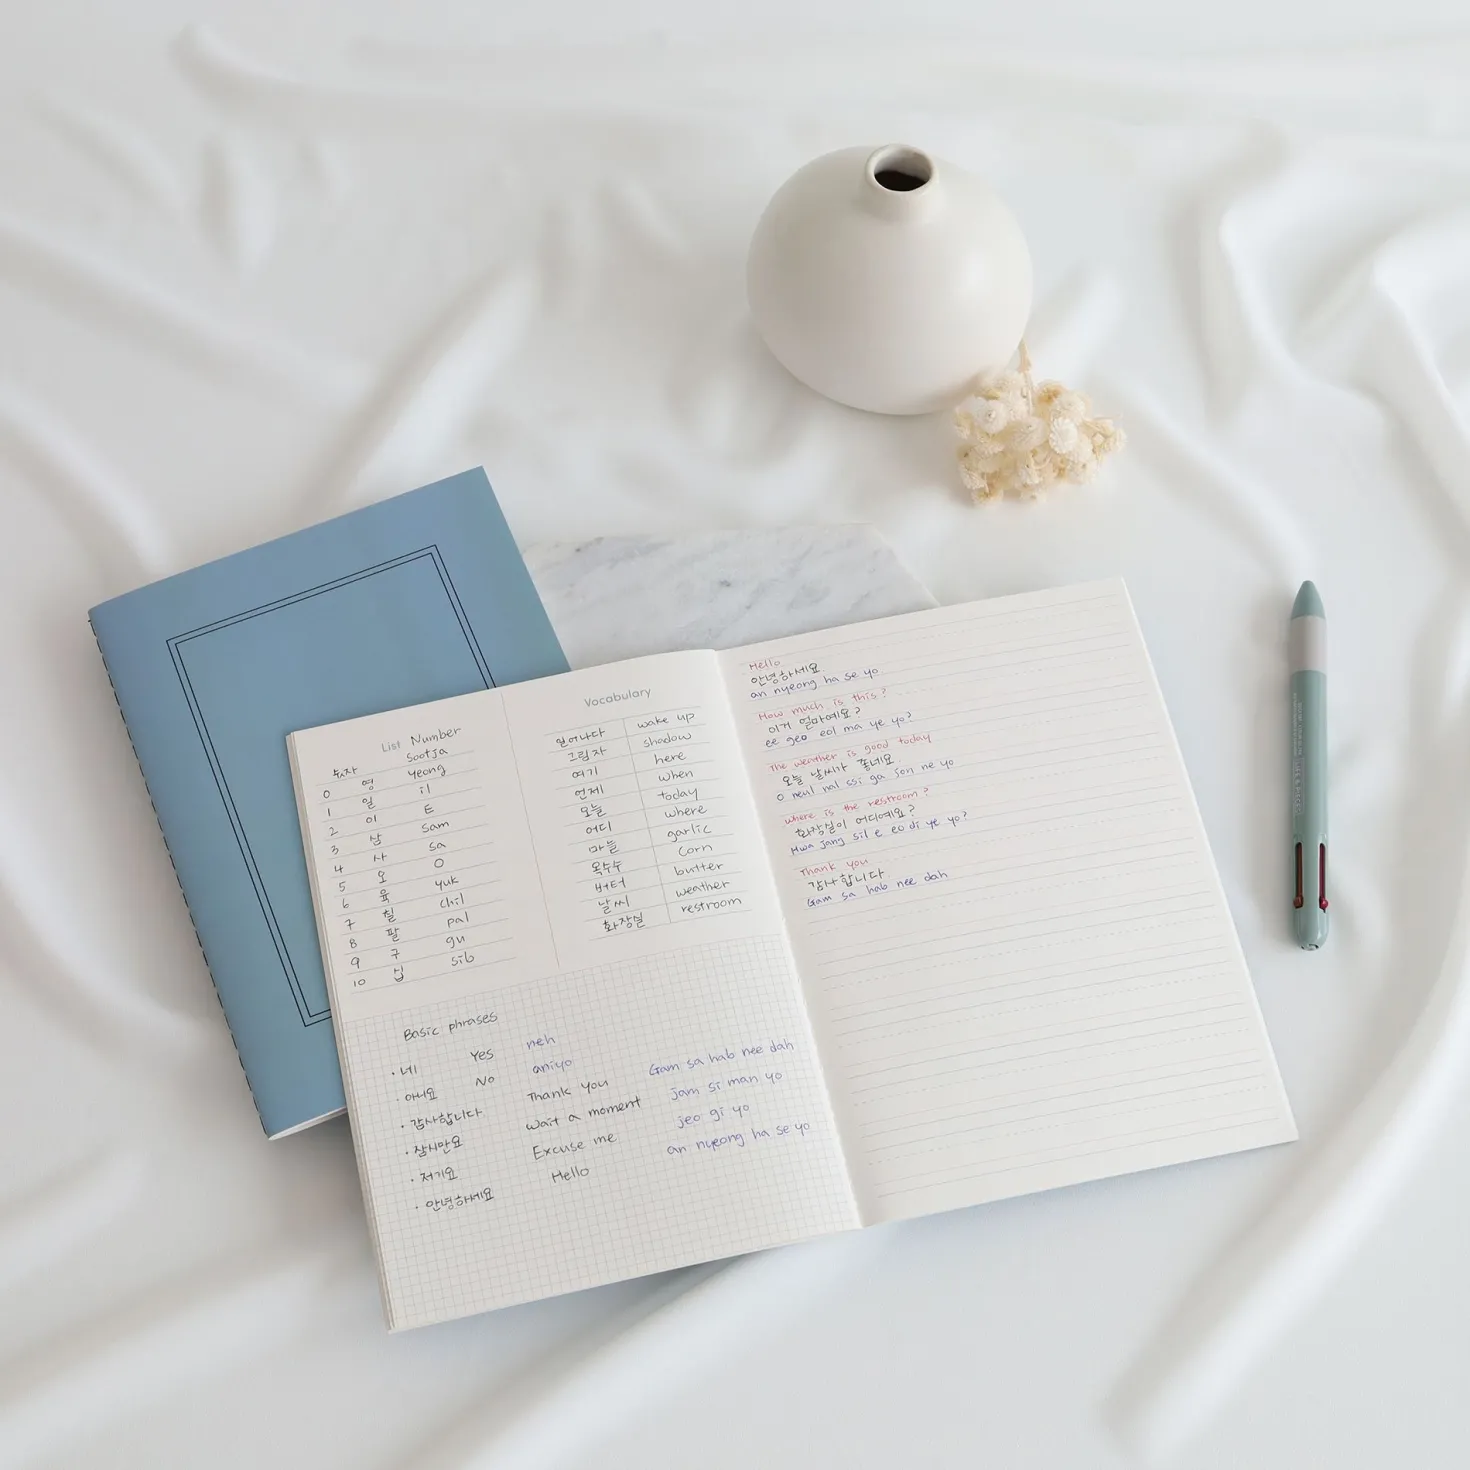 List Number
숫자 Sootja
0 영 yeong
1 일 il
2 이 E
3 삼 sam
4 사 sa
5 오 O
6 육 yuk
7 칠 chil
8 팔 pal
9 구 gu
10 십 sib
Vocabulary
일어나다 wake up
그림자 shadow
여기 here
언제 when
오늘 today
어디 where
마늘 garlic
옥수수 corn
버터 butter
날씨 weather
화장실 restroom
Basic phrases
· 네 Yes neh
· 아니요 No aniyo
· 감사합니다 Thank you Gam sa hab nee dah
· 잠시만요 wait a moment jam si man yo
· 저기요 Excuse me jeo gi yo
· 안녕하세요 Hello an nyeong ha se yo
Hello
안녕하세요
an nyeong ha se yo
How much is this?
이거 얼마예요?
ee geo eol ma ye yo?
The weather is good today
오늘 날씨가 좋네요.
o neul nal ssi ga jon ne yo
where is the restroom?
화장실이 어디예요?
Hwa jang sil e eo di ye yo?
Thank you
감사합니다
Gam sa hab nee dah